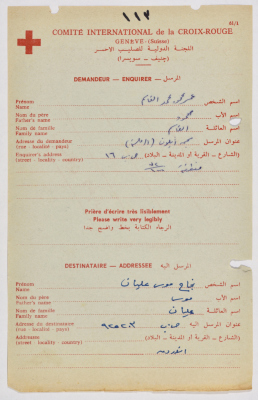 ١١٣
61/1
COMITÉ INTERNATIONAL de la CROIX-ROUGE
GENÈVE (Suisse)
اللجنة الدولية للصليب الاحمر
(جنيف - سويسرا)
DEMANDEUR — ENQUIRER — المرسل
Prénom
Name
اسم الشخص
Nom du père
Father's name
اسم الأب
محمد
Nom de famille
Family name
اسم العائلة
Adresse du demandeur
(rue - localité - pays)
عنوان المرسل
Enquirer's address
(street - locality - country)
(الشارع - القرية أو المدينة - البلاد)
Prière d'écrire très lisiblement
Please write very legibly
الرجاء الكتابة بخط واضح جدا
DESTINATAIRE — ADDRESSEE — المرسل اليه
Prénom
Name
اسم الشخص
نجاح موسى عليان
Nom du père
Father's name
اسم الأب
موسى
Nom de famille
Family name
اسم العائلة
عليان
Adresse du destinataire
(rue - localité - pays)
عنوان المرسل اليه
Addressee
(street - locality - country)
(الشارع - القرية أو المدينة - البلاد)